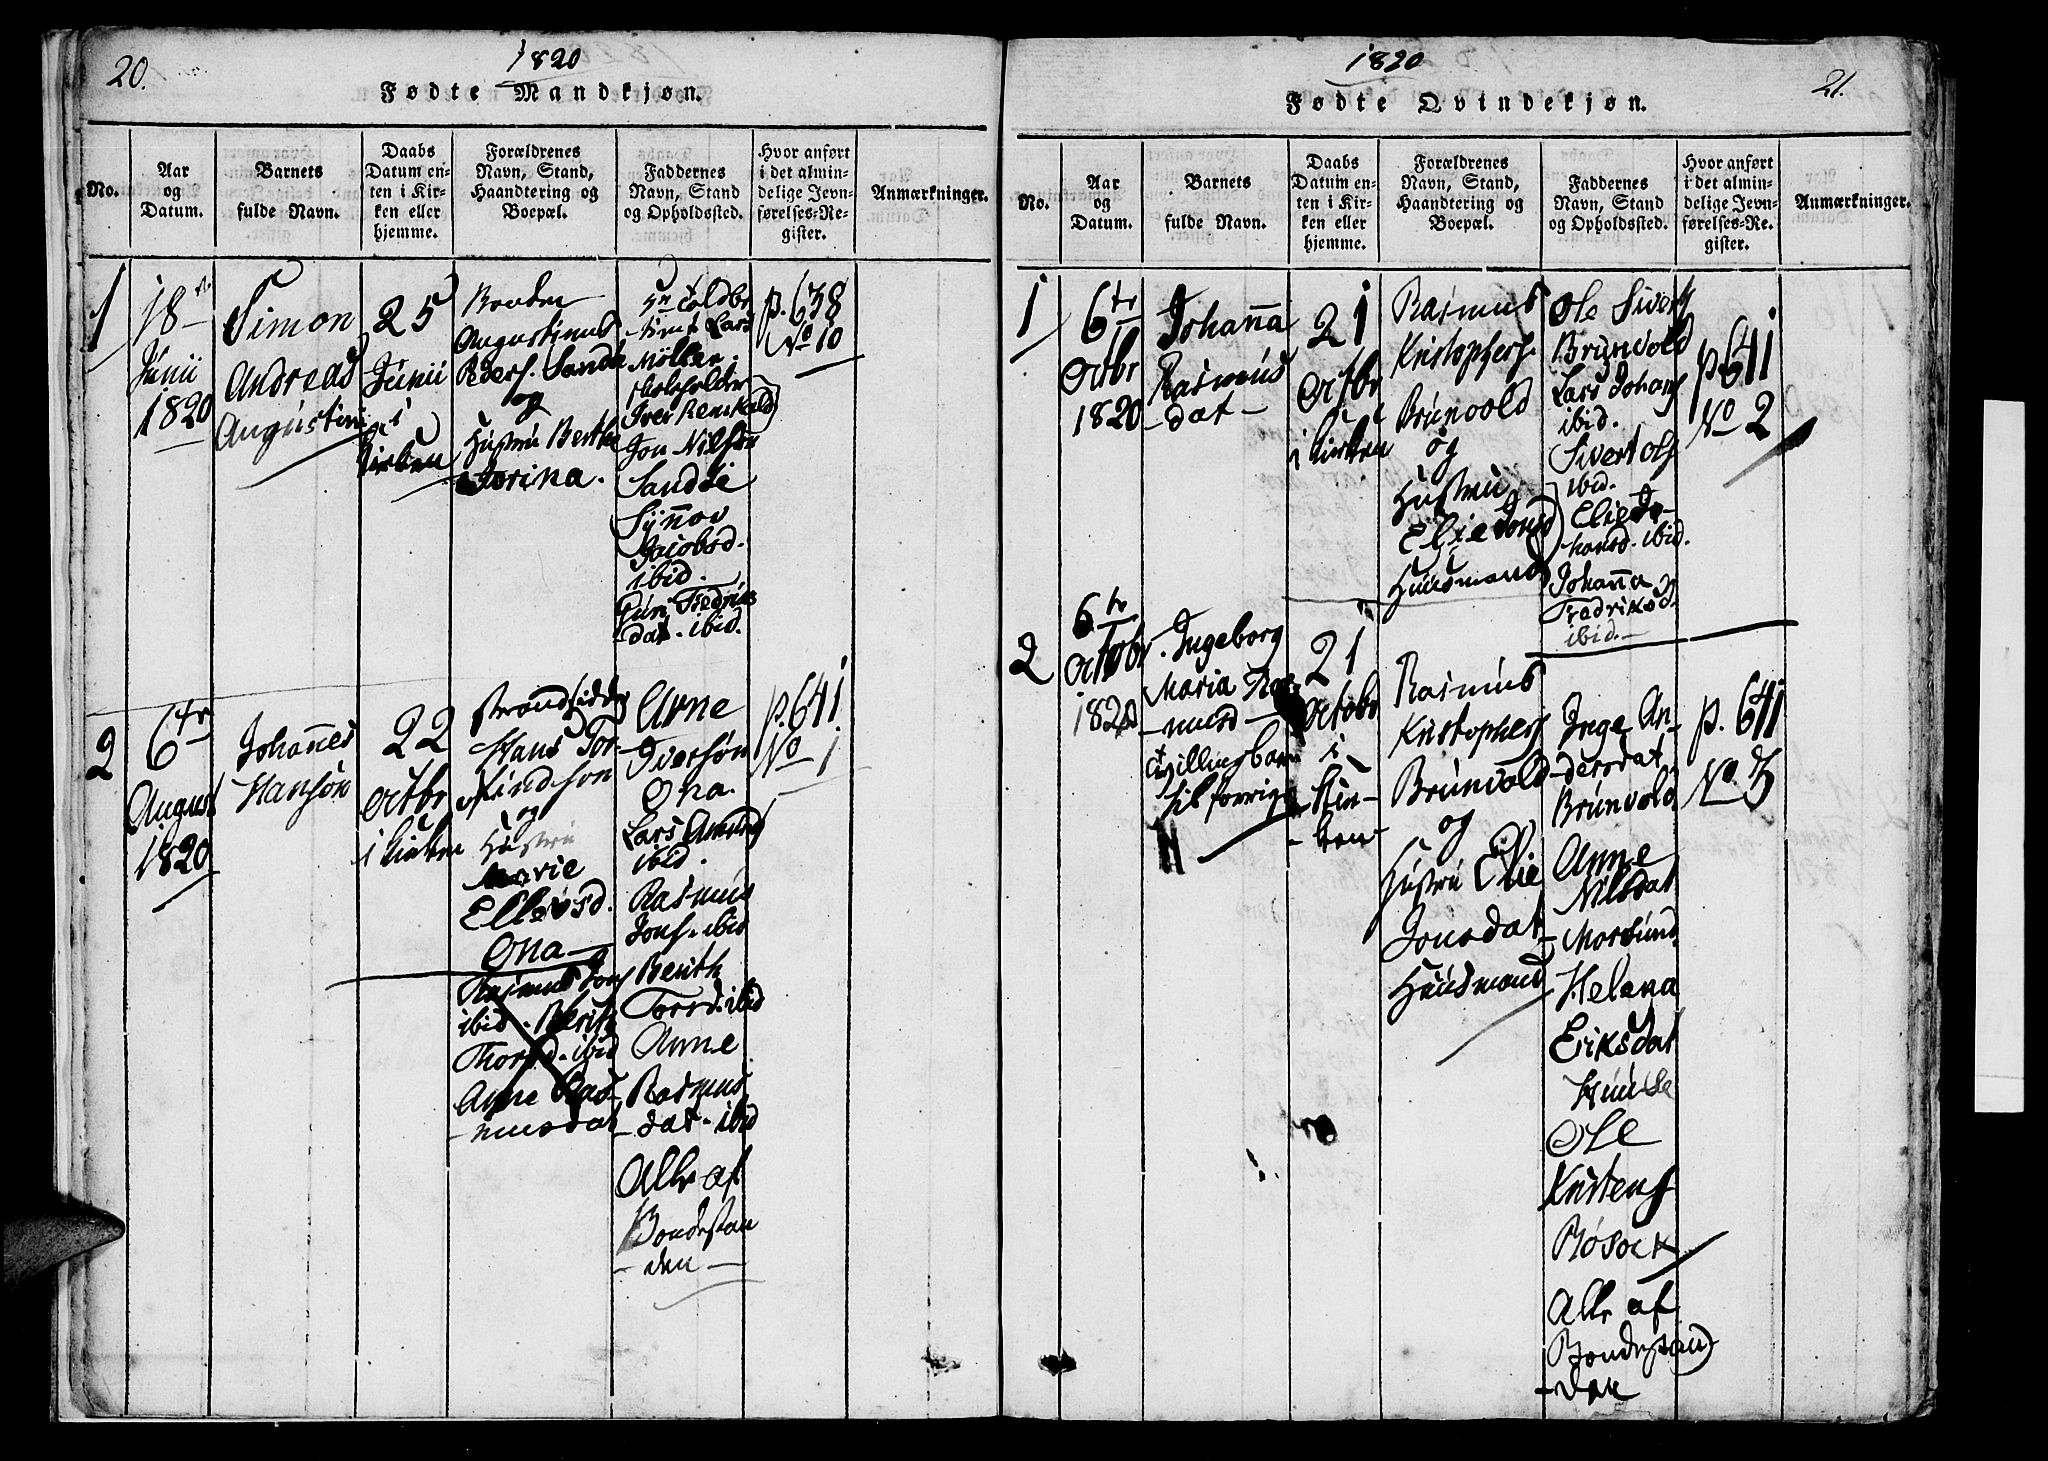 20.
1820
Fødte Mandkjøn.
No.
Aar
og
Datum.
Barnets
fulde Navn.
Daabs
Datum en-
ten i Kir-
ken eller
hjemme.
Forældrenes
Navn, Stand,
Haandtering og
Boepæl.
Faddernes
Navn, Stand
og Opholdssted.
Hvor anført
i det almin-
delige Jevn-
førelses-Re-
gister.
Anmærkninger.
1
18
Junii
1820
Simon
Andreas
25
Junii
i
Kirken
Bonden
Augustinus
Peders. Sandøe
og
Hustru Berthe
Jorina.
Møller
Jon Nilsøn
Sandøe
Sÿnov
Jacobsd.
ibid.
dat. ibid.
p. 638
No 10
2
6te
August
1820
Johannes
Hansøn
22
Octbr
i Kirken
Strandsidder
Hans Tor-
findsøn
og
Hustru
Marie
Ellevsd.
Ona
Rasmus Jons
ibid. Berith
Thorsd. ibid
Anne Ras-
musdat
Arne
Iversøn
Ona.
Lars Amunds
ibid.
Rasmus
Jons. ibid
Berith
Torsd. ibid
Anne
Rasmus
dat. ibid
Alle af
Bondestan
den
p. 641
No 1
1820
21.
Fødte Qvindekjøn.
No.
Aar
og
Datum.
Barnets
fulde Navn.
Daabs
Datum en-
ten i Kir-
ken eller
hjemme.
Forældrenes
Navn, Stand,
Haandtering og
Boepæl.
Faddernes
Navn, Stand
og Opholdssted.
Hvor anført
i det almin-
delige Jevn-
førelses-Re-
gister.
Anmærkninger.
1
6te
Octbr
1820
Johanna
Rasmus
dat
21
Octbr
i Kirken
Rasmus
Kristophers.
Brunvold
og
Hustru
Elie Jonsd
Huusmand
Ole Siverts
Brunvold
Lars Johans
ibid.
Sivert Ols
ibid.
Elie Jo-
hansd. ibid.
Johanna
Fredriksd.
ibid.
p. 641
No 2
2
6te
Octobr
1820
Ingeborg
Maria Ras-
musd
tvillingbarn
til forrige
21
Octobr
i
Kir-
ken
Rasmus
Kristophers
Brunvold
og
Hustru Elie
Jonsdat
Huusmand
Inge An-
dersdat
Brunvold
Anne
Nilsdat
Morsund
Helena
Eriksdat
Ole
Kristens
Røsock
Alle af
Bondestan
den
p. 641
No. 3